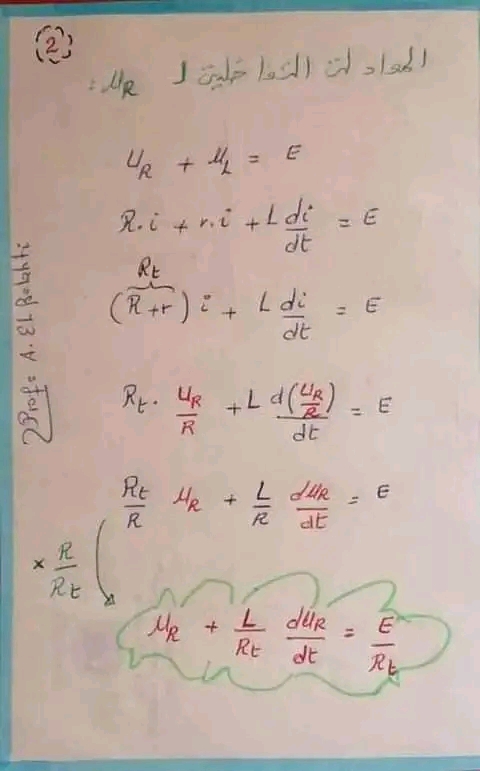 (2)
المعادلة التفاضلية ل u_R :
u_R + u_L = E
R.i + r.i + L di/dt = E
R_t
(R+r) i + L di/dt = E
R_t . u_R/R + L d(u_R/R)/dt = E
R_t/R u_R + L/R du_R/dt = E
× R/R_t
u_R + L/R_t du_R/dt = E/R_t
Prof: A. EL